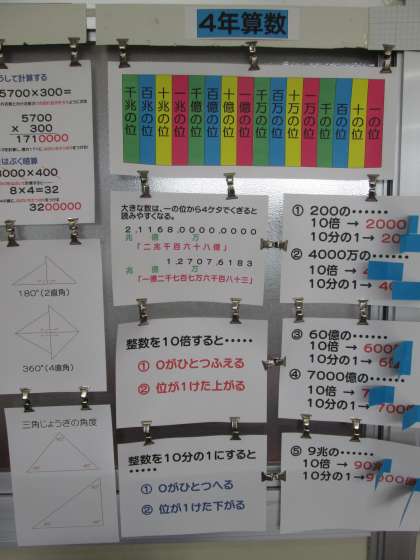 4年算数
うして計算する
5700×300=
5700
× 300
1710000
はぶく暗算
8000×400
8×4=32
3200000
千兆の位
百兆の位
十兆の位
一兆の位
千億の位
百億の位
十億の位
一億の位
千万の位
百万の位
十万の位
一万の位
千の位
百の位
十の位
一の位
大きな数は、一の位から4ケタでくぎると
読みやすくなる。
2,1168,0000,0000
兆 億 万
「二兆千百六十八億」
1,2707,6183
兆 億 万
「一億二千七百七万六千百八十三」
① 200の・・・・・・
10倍 → 2000
10分の1 → 20
② 4000万の・・・・・
10倍 → 4
10分の1 → 40
180°(2直角)
360°(4直角)
整数を10倍すると・・・・・
① 0がひとつふえる
② 位が1けた上がる
③ 60億の・・・・・・
10倍 → 600
10分の1 → 6
④ 7000億の・・・・・
10倍 → 7
10分の1 → 700
三角じょうぎの角度
整数を10分の1にすると
・・・・・
① 0がひとつへる
② 位が1けた下がる
⑤ 9兆の・・・・・・
10倍 → 90
10分の1 → 9000